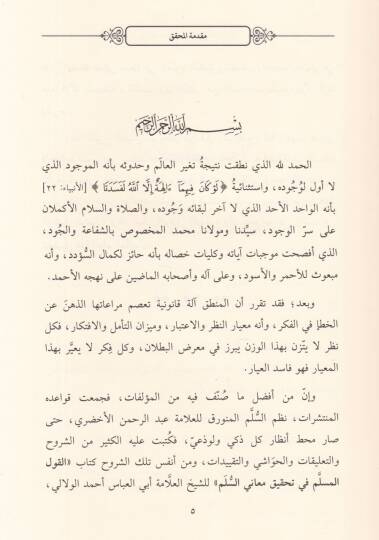 مقدمة المحقق
بِسْمِ اللَّهِ الرَّحْمَنِ الرَّحِيمِ
الحمد لله الذي نطقت نتيجةُ تغير العالَم وحدوثه بأنه الموجود الذي
لا أول لوُجُوده، واستثنائيةُ ﴿لَوْ كَانَ فِيهِمَآ ءَالِهَةٌ إِلَّا ٱللَّهُ لَفَسَدَتَا﴾ [الأنبياء: ٢٢]
بأنه الواحد الأحد الذي لا آخر لبقائه وَجُوده، والصلاة والسلام الأكملان
على سرّ الوجود، سيِّدنا ومولانا محمد المخصوص بالشفاعة والجُود،
الذي أفصحت موجبات آياته وكليات خصاله بأنه حائز لكمال السُّؤدد، وأنه
مبعوث للأحمر والأسود، وعلى آله وأصحابه الماضين على نهجه الأحمد.
وبعد؛ فقد تقرر أن المنطق آلة قانونية تعصم مراعاتها الذهنَ عن
الخطإ في الفكر، وأنه معيار النظر والاعتبار، وميزان التأمل والافتكار، فكل
نظر لا يتّزن بهذا الوزن يبرز في معرض البطلان، وكل فِكر لا يعيَّر بهذا
المعيار فهو فاسد العيار.
وإنّ من أفضل ما صُنّف فيه من المؤلفات، فجمعت قواعده
المنتشرات، نظم السُّلَّم المنورق للعلامة عبد الرحمن الأخضري، حتى
صار محط أنظار كل ذكي ولوذعيّ، فكُتبت عليه الكثير من الشروح
والتعليقات والحَواشي والتقييدات، ومن أنفس تلك الشروح كتاب «القول
المسلَّم في تحقيق معاني السُّلَّم» للشيخ العلَّامة أبي العباس أحمد الولالي،
٥